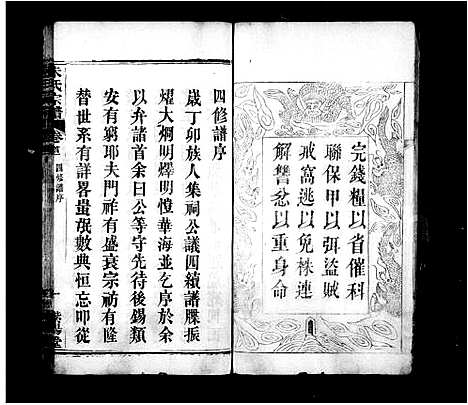 完錢糧以省催科
聯保甲以弭盜賊
戒窩逃以免株連
解讐忿以重身命
四修譜序
歲丁卯族人集祠公議四續譜牒振
燿大烱明燡明愷華海並乞序於余
以弁諸首余曰公等守先待後錫類
安有窮耶夫門祚有盛衰宗祊有隆
替世系有詳畧蚩氓數典恒忘叩從
朱氏宗譜
卷首
四修譜序
一
紫陽堂